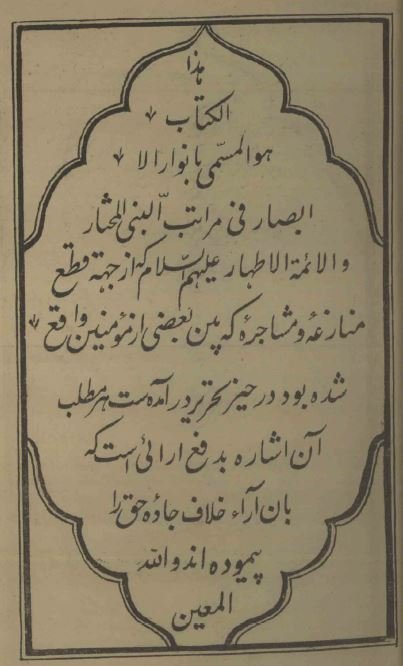 هذا
الکتاب
هو المسمّی بانوار الا
بصار فی مراتب النبیّ المختار
والائمة الاطهار علیهم السلام که از جهة قطع
منازعهٔ و مشاجرهٔ که بین بعضی از مؤمنین واقع
شده بود در حیز تحریر در آمده است هر مطلب
آن اشاره بدفع ارائی است که
بان آراء خلاف جادهٔ حق را
پیموده اند والله
المعین